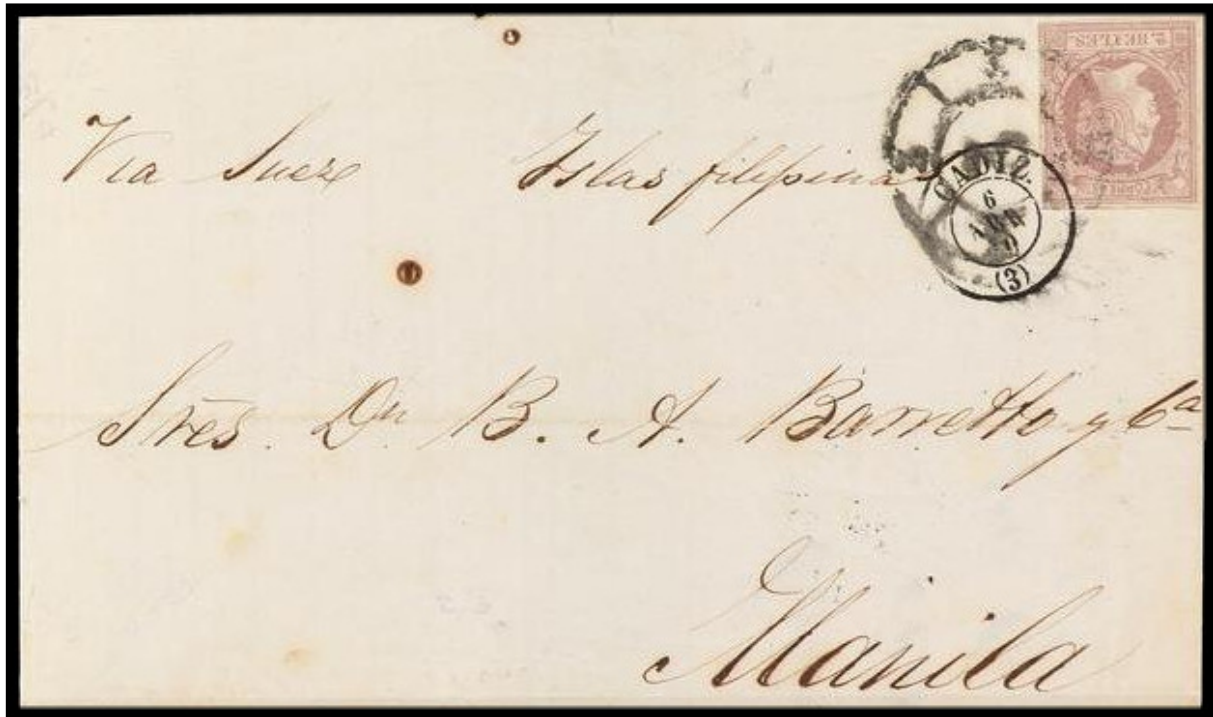 Via Suez Islas filipinas
CADIZ.
6
(3)
2 REALES.
Srēs. Dn B. A. Barretto y Ca
Manila